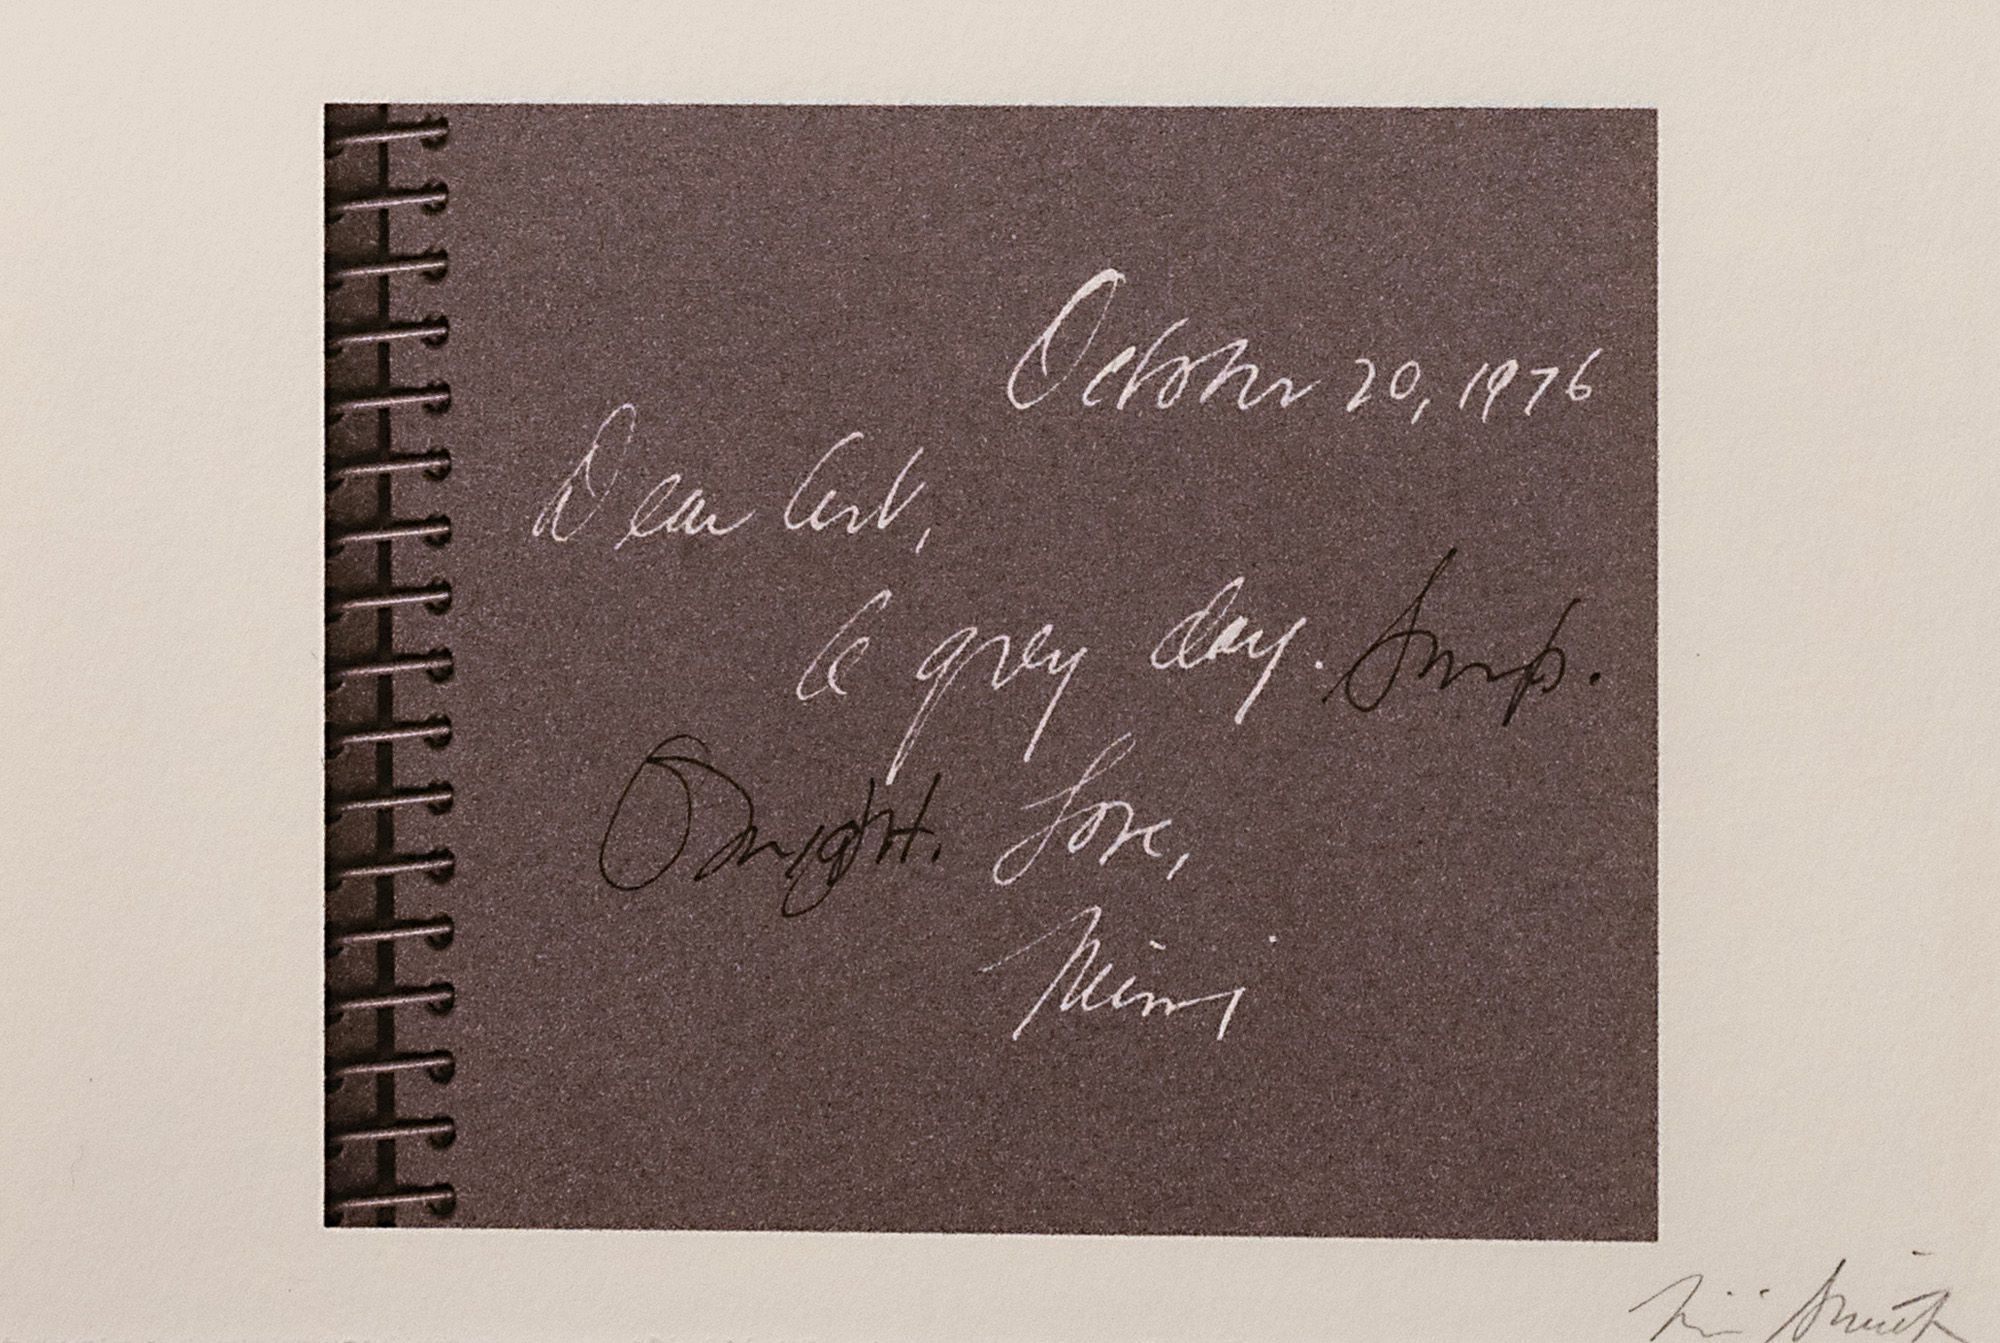 October 20, 1976
Dear Art,
A grey day.
Onight. Love,
Mimi
Mimi Smith